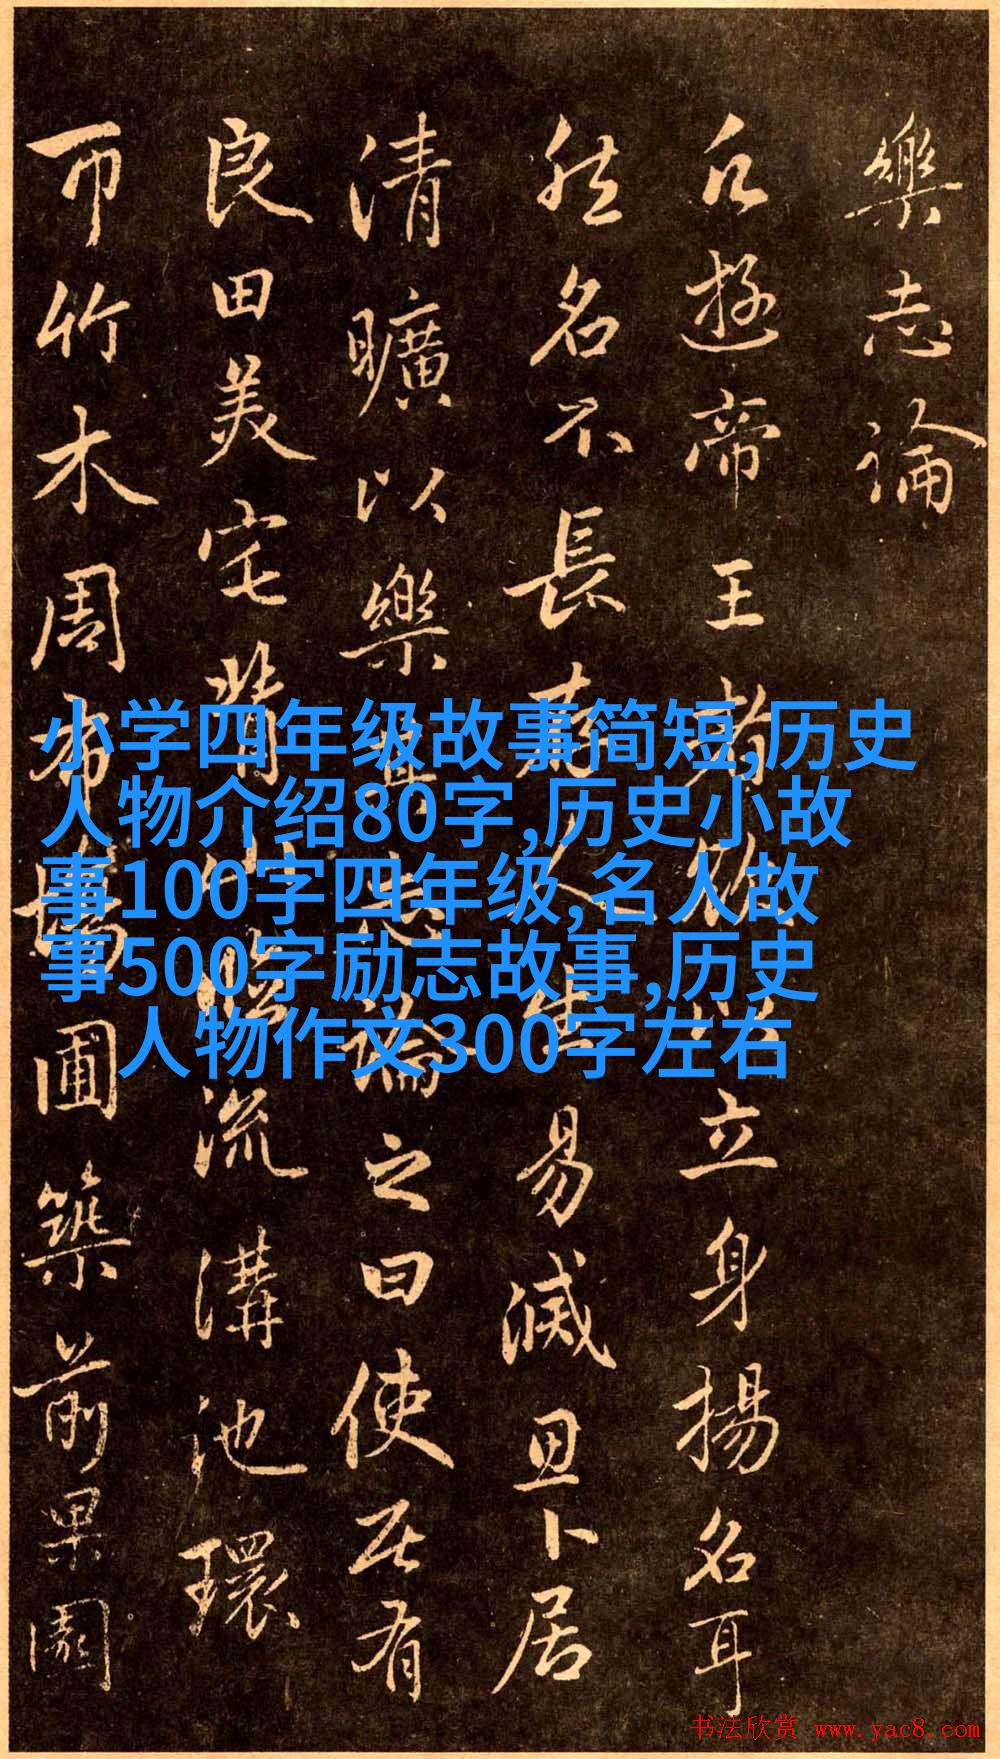 樂志論
凡遊帝王者欲以立身揚名耳
然名不長存人生易滅思卜居
清曠以樂其志論之曰使居有
良田美宅背山臨流溝池環
帀竹木周布場圃築前果園
小学四年级故事简短,历史
人物介绍80字,历史小故
事100字四年级,名人故
事500字励志故事,历史
人物作文300字左右
书法欣赏 www.yac8.com